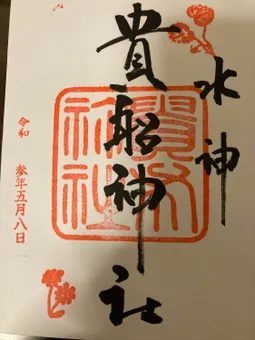 水神
貴船神社
貴船神社
令和
参年五月八日